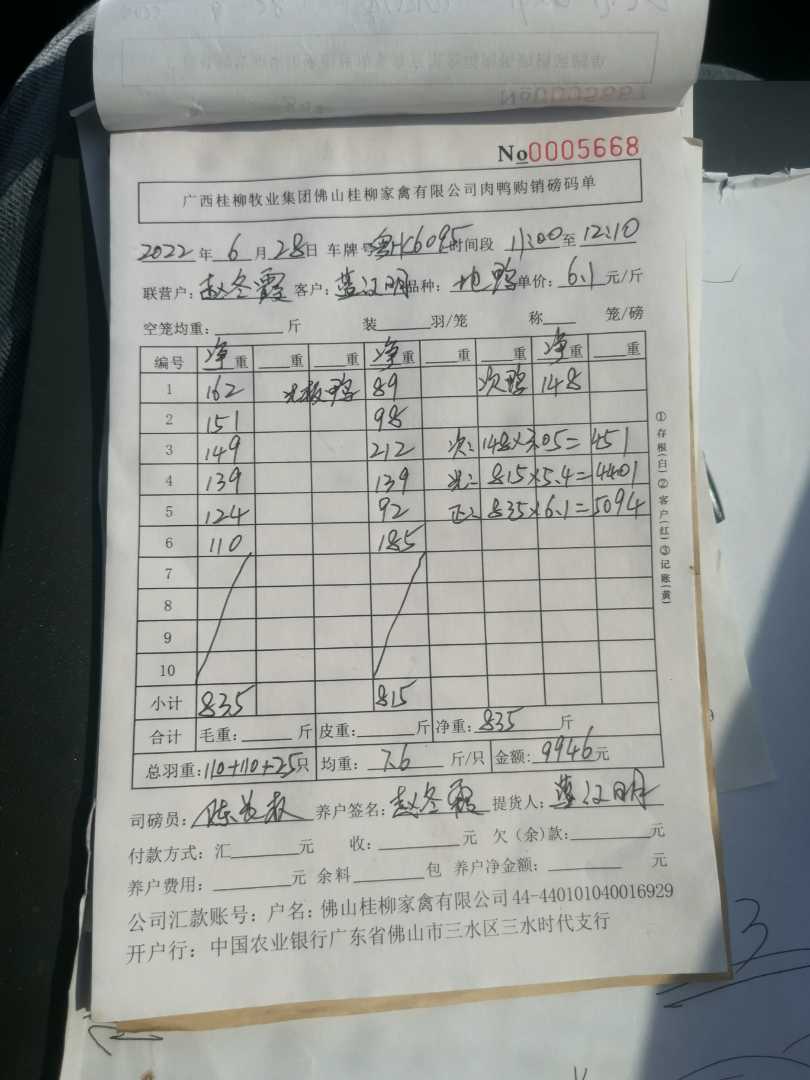 No0005668
广西桂柳牧业集团佛山桂柳家禽有限公司肉鸭购销磅码单
2022年6月28日 车牌号粤HK6095时间段 11:00至12:10
联营户:赵冬霞 客户:蓝汉明品种: 地鸭单价:6.1元/斤
空笼均重:斤 装羽/笼 称笼/磅
编号 净重 重 重 净重 重 重 净重 重
1 162 光板鸭 89 次鸭 148
2 151 98
3 149 212 次:148×3.05=451
4 139 139 光:815×5.4=4401
5 124 92 正:835×6.1=5094
6 110 185
7
8
9
10
小计 835 815
合计 毛重:斤 皮重:斤 净重:835斤
总羽重:110+110+25只 均重:7.6斤/只 金额:9946元
司磅员: 养户签名:赵冬霞 提货人:蓝汉明
付款方式:汇元 收:元 欠(余)款:元
养户费用:元 余料包 养户净金额:元
公司汇款账号:户名:佛山桂柳家禽有限公司44-440101040016929
开户行:中国农业银行广东省佛山市三水区三水时代支行
①存根(白)②客户(红)③记账(黄)